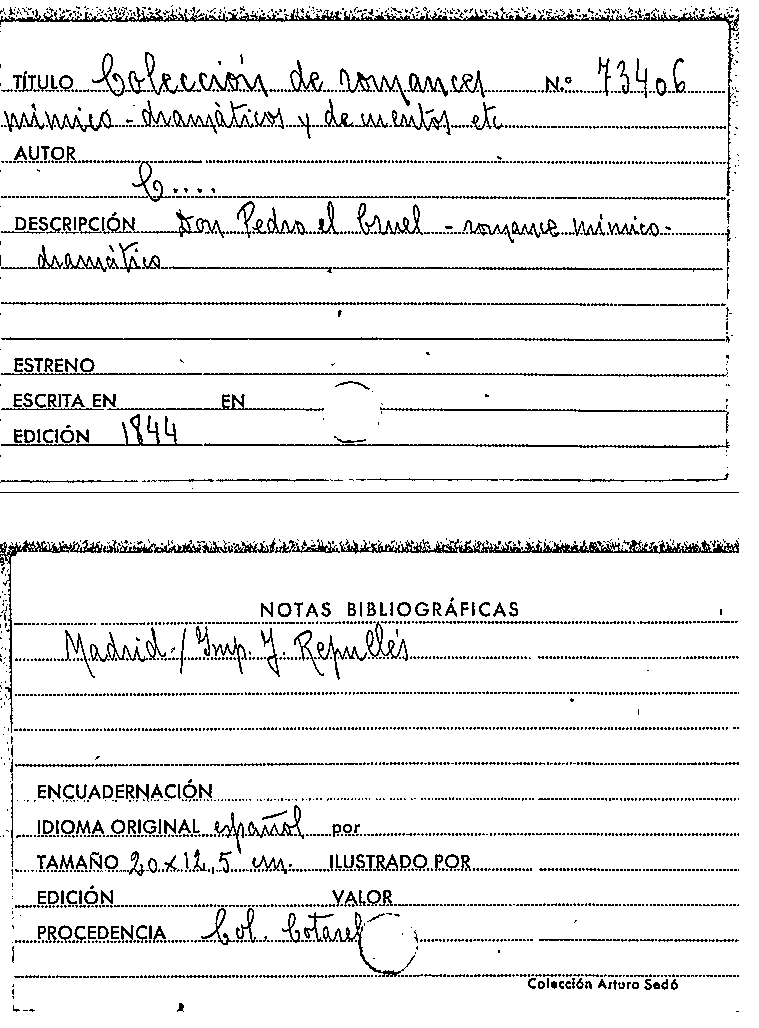 TÍTULO Colección de romances N.º 73406
mímico-dramáticos y de cuentos etc
AUTOR
C....
DESCRIPCIÓN Don Pedro el Cruel - romance mímico-
dramático
ESTRENO
ESCRITA EN EN
EDICIÓN 1844
NOTAS BIBLIOGRÁFICAS
Madrid-/Imp. J. Repullés
ENCUADERNACIÓN
IDIOMA ORIGINAL español por
TAMAÑO 20x12,5 cm. ILUSTRADO POR
EDICIÓN VALOR
PROCEDENCIA Col. Cotarel
Colección Arturo Sedó